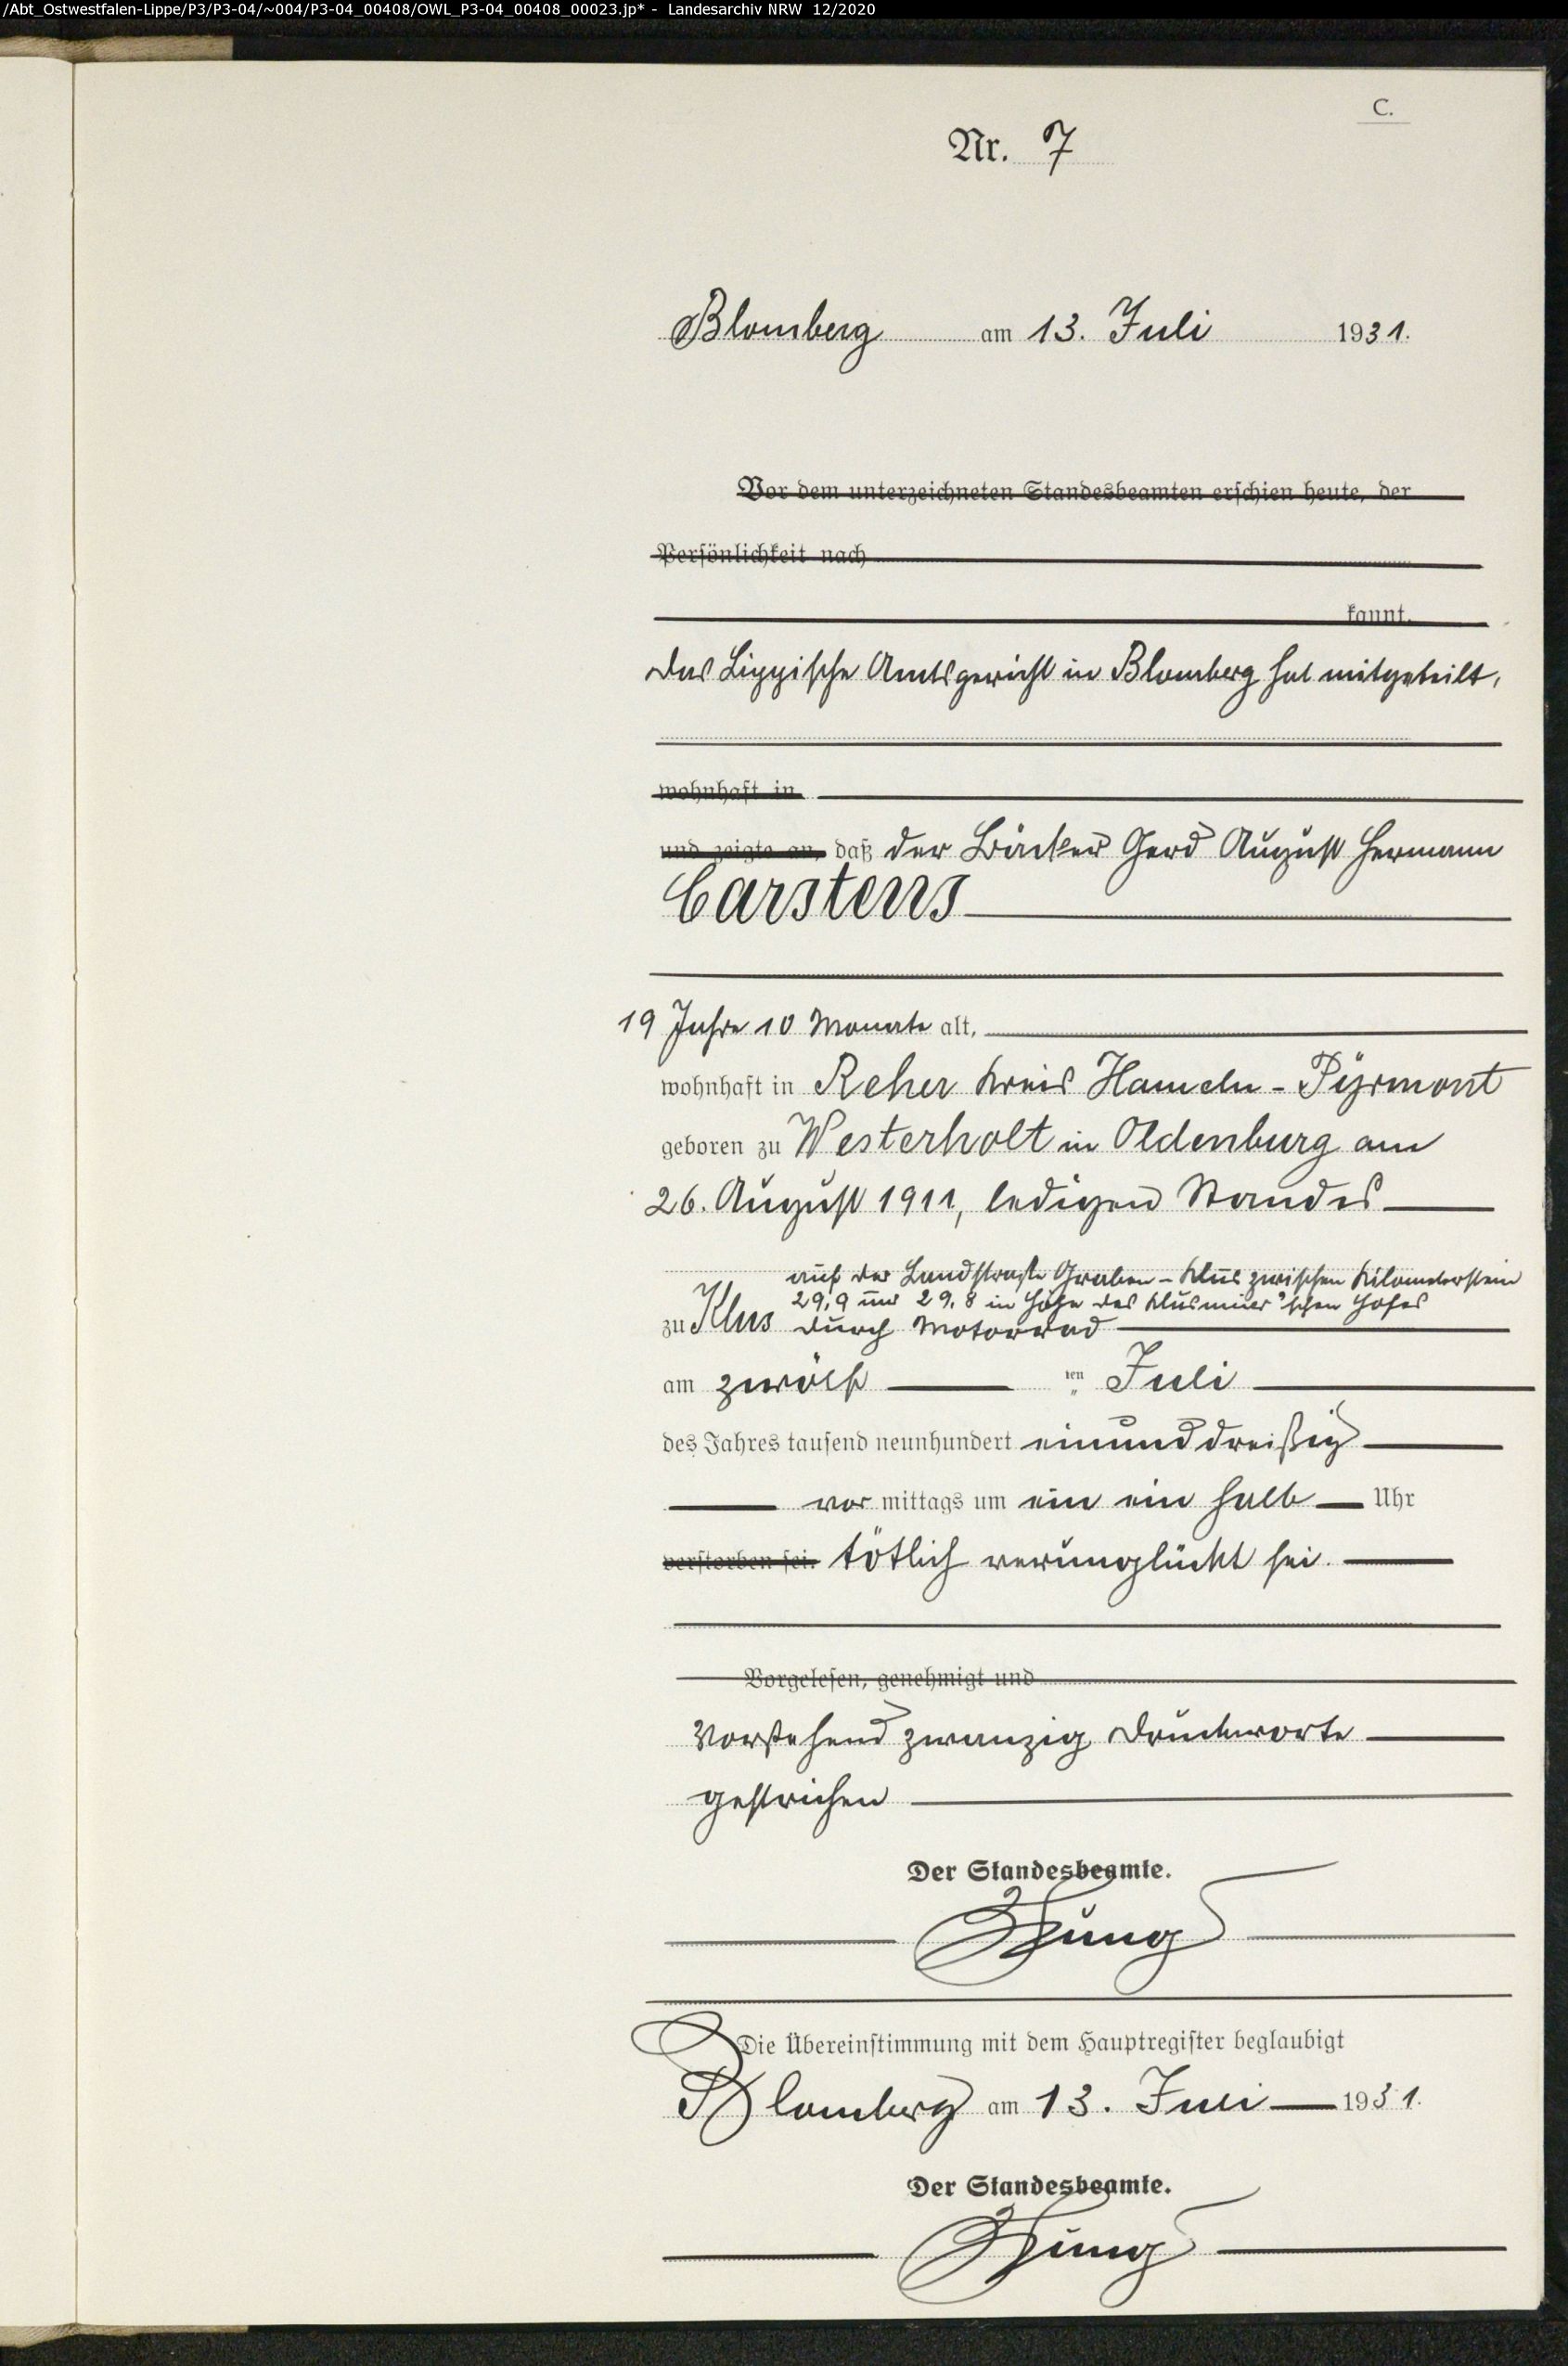 /Abt_Ostwestfalen-Lippe/P3/P3-04/~004/P3-04_00408/OWL_P3-04_00408_00023.jp* - Landesarchiv NRW 12/2020
C.
Nr. 7
Blomberg am 13. Juli 1931.
Vor dem unterzeichneten Standesbeamten erschien heute, der
Persönlichkeit nach
kannt.
Das Lippische Amtsgericht in Blomberg hat mitgeteilt,
wohnhaft in
und zeigte an, daß der Bäcker Gerd August Hermann
Carstens
19 Jahre 10 Monate alt,
wohnhaft in Reher Kreis Hameln-Pyrmont
geboren zu Westerholt in Oldenburg am
26. August 1911, ledigen Standes
auf der Landstraße Graben-Klus zwischen Kilometerstein
29,9 und 29,8 in Höhe des Klusmeier'schen Hofes
zu Klus durch Motorrad
am zwölf ten Juli
des Jahres tausend neunhundert einunddreißig
vor mittags um ein ein halb Uhr
verstorben sei. tötlich verunglückt sei.
Vorgelesen, genehmigt und
Vorstehend zwanzig Druckworte
gestrichen
Der Standesbeamte.
Die Übereinstimmung mit dem Hauptregister beglaubigt
Blomberg am 13. Juli 1931.
Der Standesbeamte.